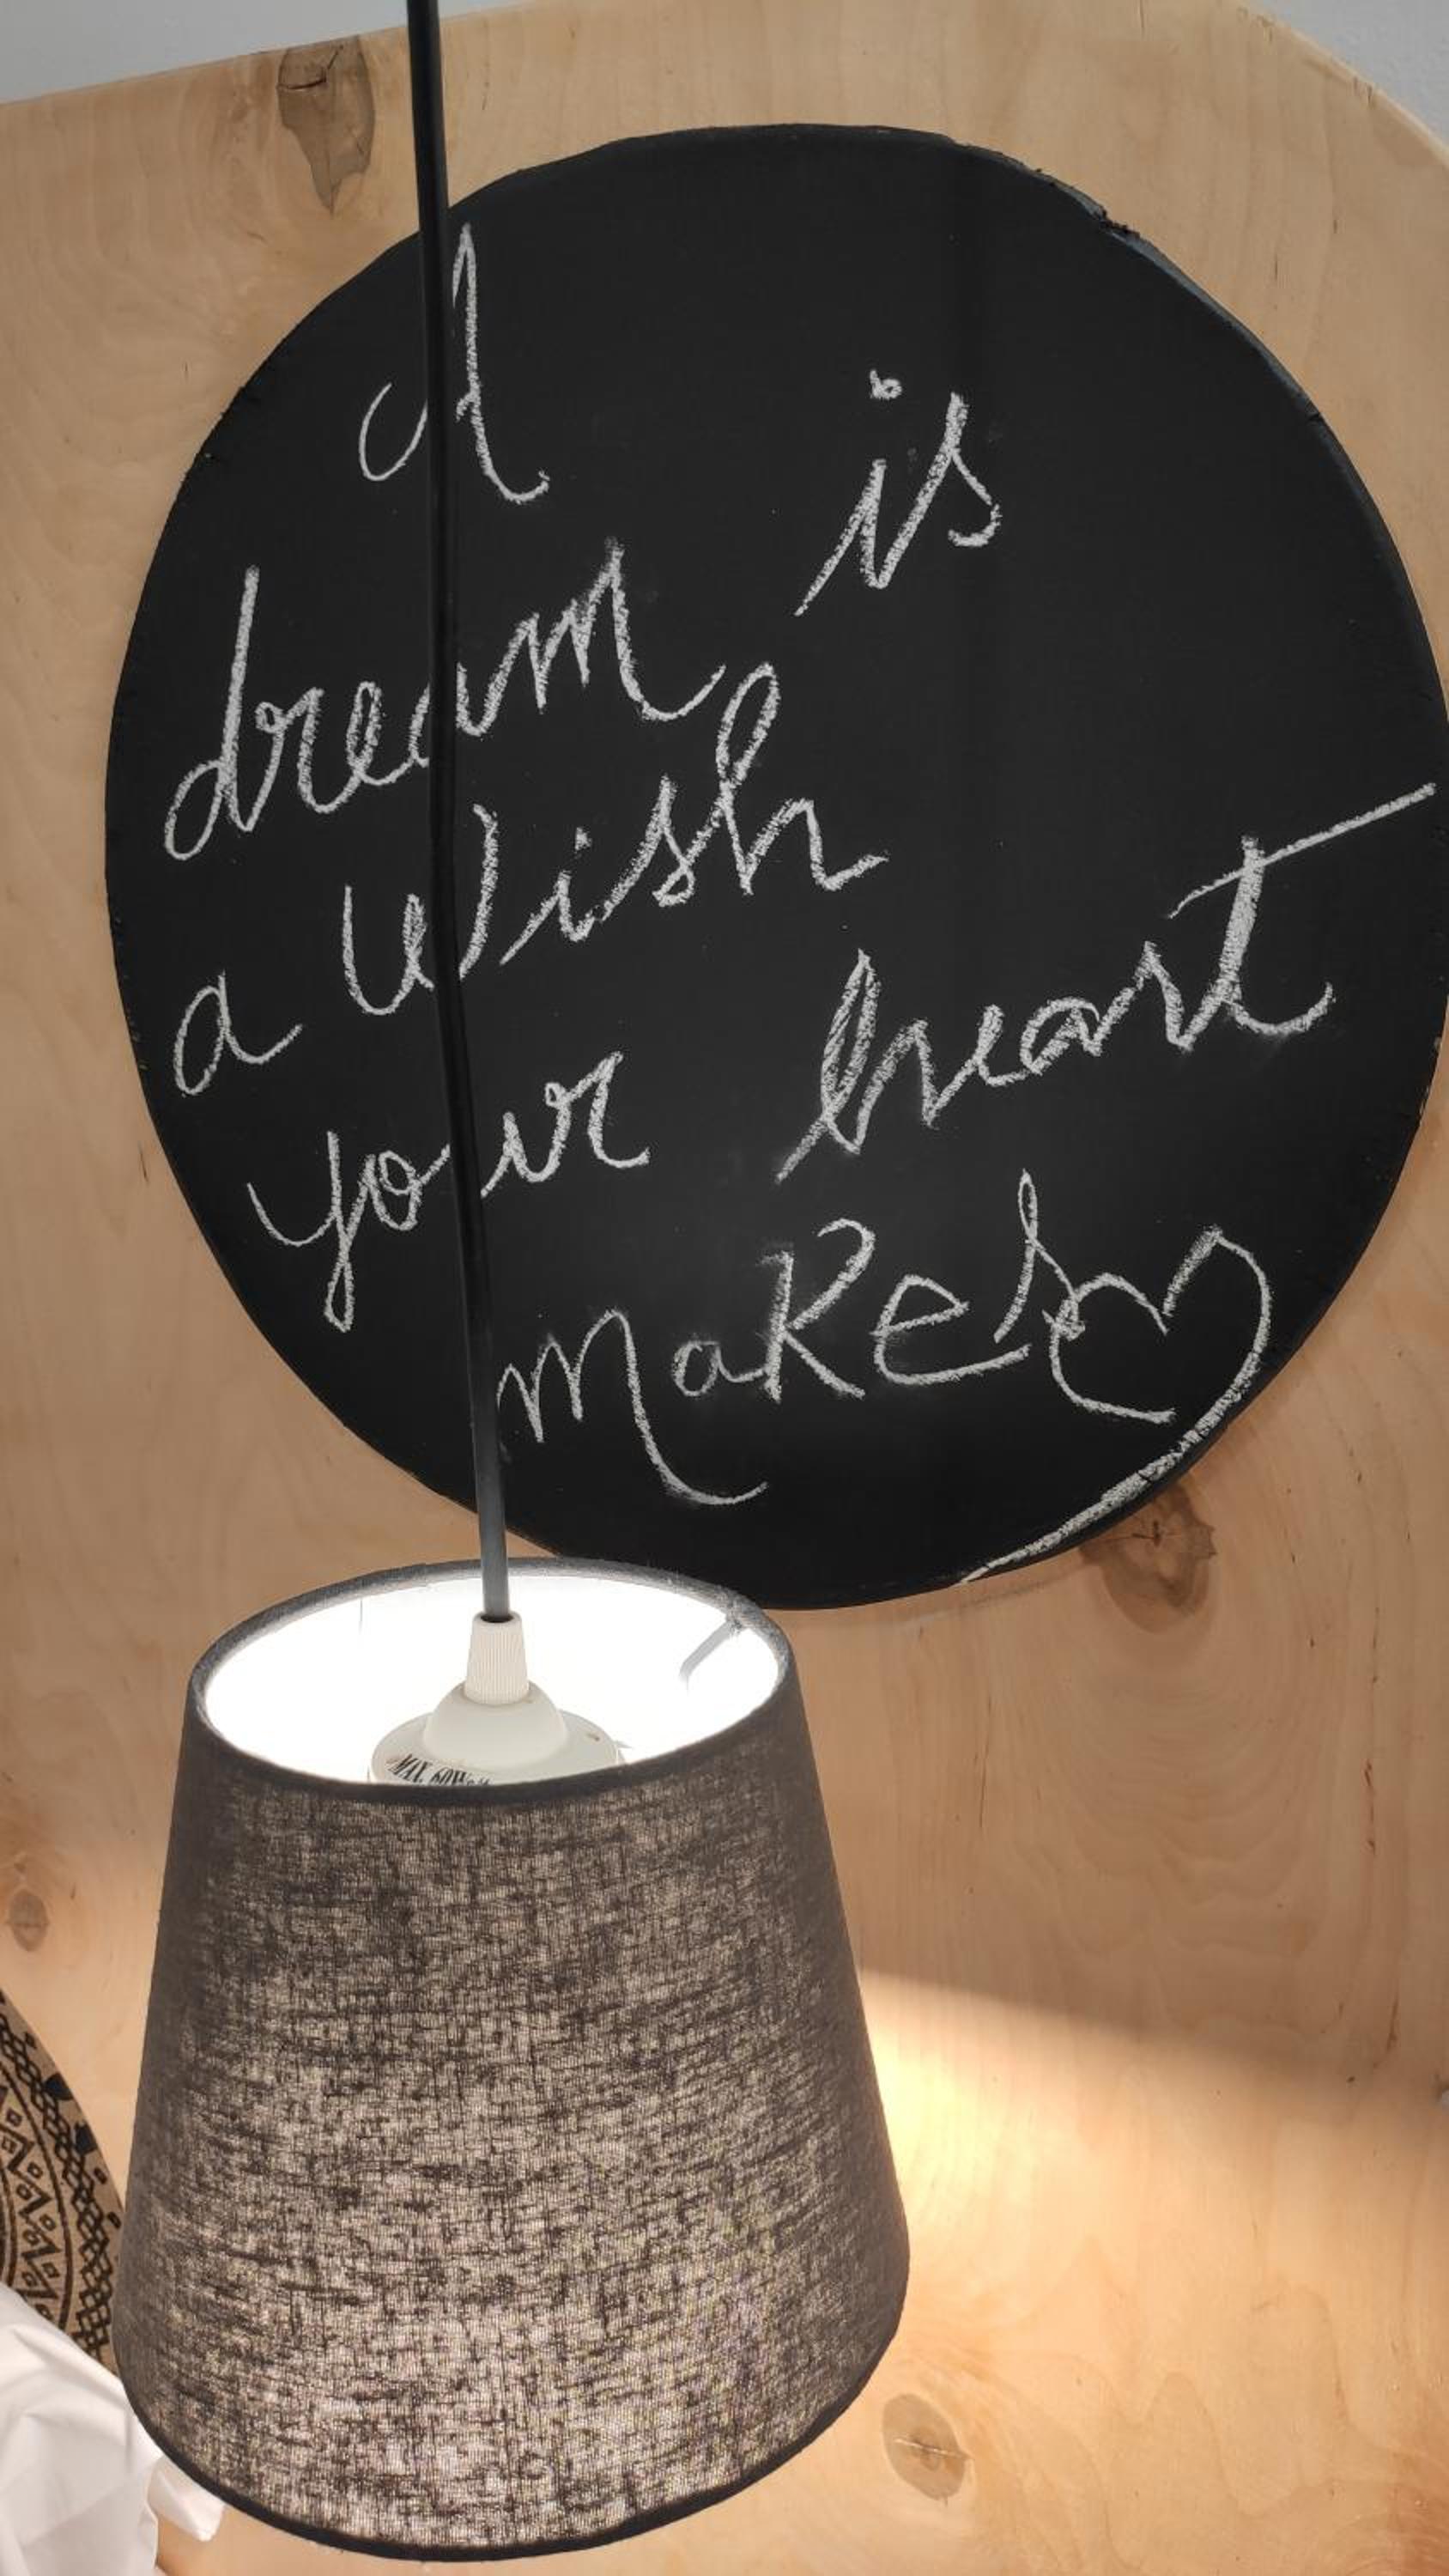 A
dream is
a wish
your heart
makes
MAX. 60W